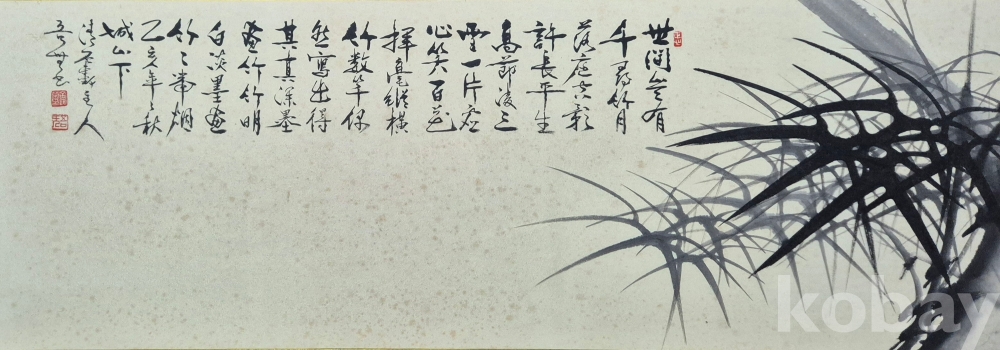 世間無有
千尋竹月
落庭空影
許長平生
高節凌三
雪一片虛
心笑百花
揮毫縱橫
竹數竿偶
然寫出得
其真深墨
畵竹竹明
白淡墨畵
竹々帶烟
乙亥年之秋
城山下
主人
kobay